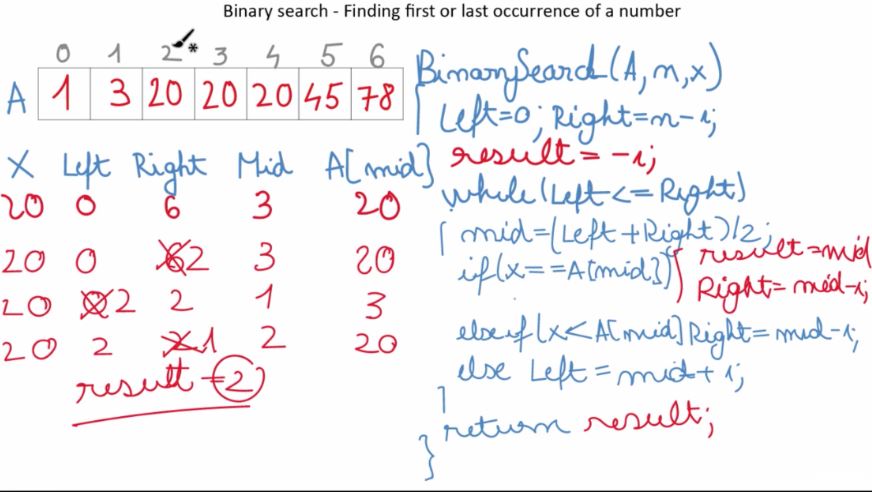 Binary search - Finding first or last occurrence of a number
0 1 2 * 3 4 5 6
A 1 3 20 20 20 45 78
X Left Right Mid A[mid]
20 0 6 3 20
20 0 6 2 3 20
20 0 2 2 1 3
20 2 2 1 2 20
result = 2
BinarySearch(A,n,x)
{ Left=0; Right=n-1;
result = -1;
while(Left<=Right)
{ mid=(Left+Right)/2;
if(x==A[mid]) { result=mid
Right=mid-1;
elseif(x<A[mid] Right=mid-1;
else Left=mid+1;
}
return result;
}